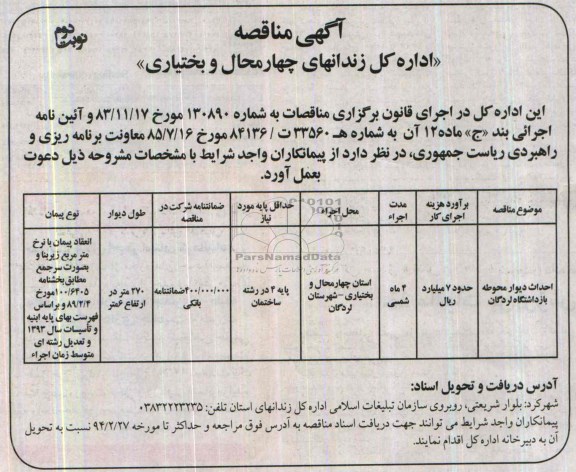 آگهی مناقصه
نوبت دوم
«اداره کل زندانهای چهارمحال و بختیاری»
این اداره کل در اجرای قانون برگزاری مناقصات به شماره ۱۳۰۸۹۰ مورخ ۸۳/۱۱/۱۷ و آئین نامه
اجرائی بند «ج» ماده۱۲ آن به شماره هـ ۳۳۵۶۰ ت / ۸۴۱۳۶ مورخ ۸۵/۷/۱۶ معاونت برنامه ریزی و
راهبردی ریاست جمهوری، در نظر دارد از پیمانکاران واجد شرایط با مشخصات مشروحه ذیل دعوت
بعمل آورد.
موضوع مناقصه
برآورد هزینه
اجرای کار
مدت
اجراء
محل اجراء
حداقل پایه مورد
نیاز
ضمانتنامه شرکت در
مناقصه
طول دیوار
نوع پیمان
احداث دیوار محوطه
بازداشتگاه لردگان
حدود ۷ میلیارد
ریال
۴ ماه
شمسی
استان چهارمحال و
بختیاری - شهرستان
لردگان
پایه ۴ در رشته
ساختمان
۴۰۰/۰۰۰/۰۰۰ضمانتنامه
بانکی
۲۷۰ متر در
ارتفاع ۶متر
انعقاد پیمان با نرخ
متر مربع زیربنا و
بصورت سرجمع
مطابق بخشنامه
۱۰۰/۶۴۰۵مورخ
۸۹/۲/۴ و براساس
فهرست بهای پایه ابنیه
و تأسیسات سال ۱۳۹۳
و تعدیل رشته ای
متوسط زمان اجراء
ParsNamadData
آدرس دریافت و تحویل اسناد:
شهرکرد: بلوار شریعتی، روبروی سازمان تبلیغات اسلامی اداره کل زندانهای استان تلفن: ۰۳۸۳۲۲۲۳۲۳۵
پیمانکاران واجد شرایط می توانند جهت دریافت اسناد مناقصه به آدرس فوق مراجعه و حداکثر تا مورخه ۹۴/۲/۲۷ نسبت به تحویل
آن به دبیرخانه اداره کل اقدام نمایند.